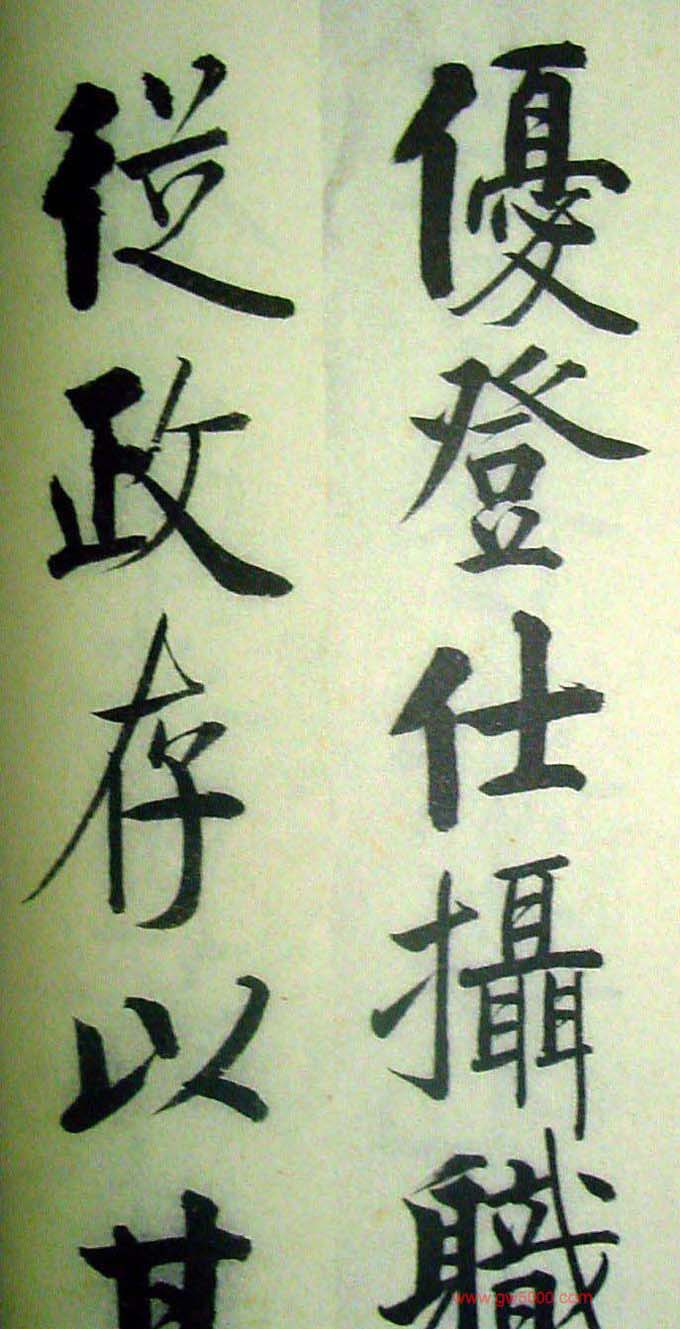 優登仕攝職
従政存以甘
www.gw5000.com